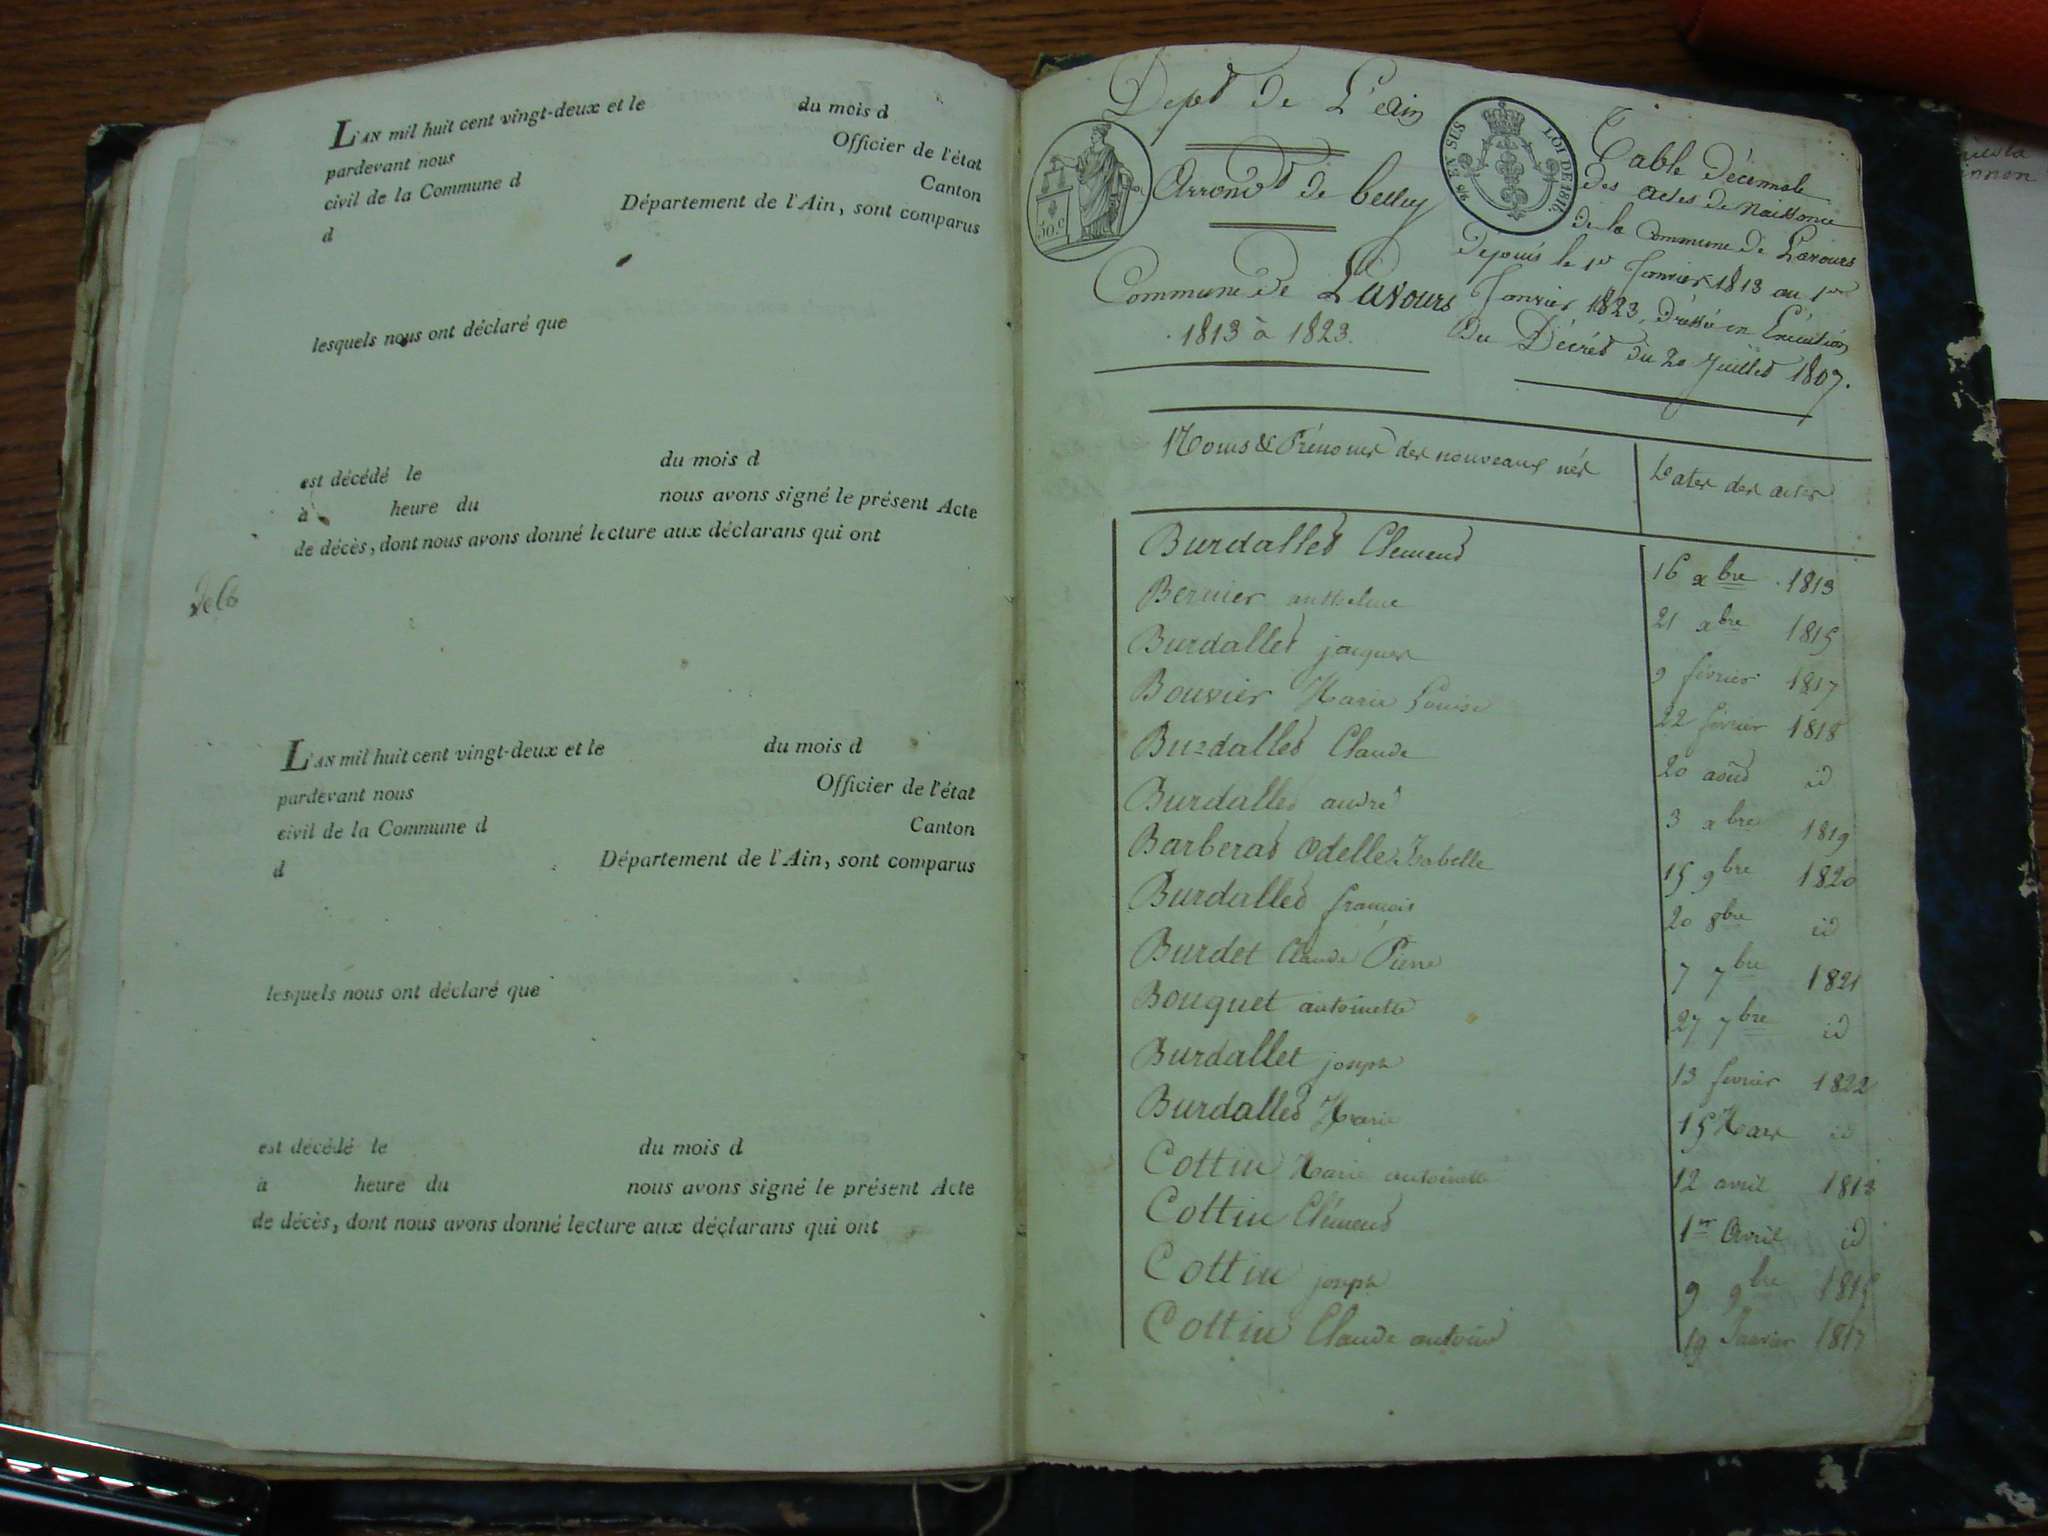 L'AN mil huit cent vingt-deux et le du mois d
pardevant nous Officier de l'état
civil de la Commune d Canton
d Département de l'Ain, sont comparus
lesquels nous ont déclaré que
est décédé le du mois d
à heure du nous avons signé le présent Acte
de décès, dont nous avons donné lecture aux déclarans qui ont
L'AN mil huit cent vingt-deux et le du mois d
pardevant nous Officier de l'état
civil de la Commune d Canton
d Département de l'Ain, sont comparus
lesquels nous ont déclaré que
est décédé le du mois d
à heure du nous avons signé le présent Acte
de décès, dont nous avons donné lecture aux déclarans qui ont
Depet de L'ain
Arrondt de belley
Commune de Lavours
1813 à 1823.
50.c
LOI DE 1816.
Table décennale
des actes de Naissance
de la Commune de Lavours
depuis le 1er Janvier 1813 au 1er
Janvier 1823, dressé en Exécution
du Décret du 20 Juillet 1807.
Noms & Prénoms des nouveaux nés Dates des actes
Burdallet Clement 16 xbre 1813
Bernier anthelme 21 xbre 1815
Burdallet jacques 9 février 1817
Bouvier Marie Louise 22 février 1818
Burdallet Claude 20 août id
Burdallet andré 3 xbre 1819
Barberat Odelle Isabelle 15 9bre 1820
Burdallet françois 20 8bre id
Burdet Claude Pierre 7 7bre 1821
Bouquet antoinette 27 7bre id
Burdallet joseph 13 fevrier 1822
Burdallet Marie 15 Mars id
Cottin Marie antoinette 12 avril 1813
Cottin Clément 1er Avril id
Cottin joseph 9 9bre 1815
Cottin Claude antoine 19 Janvier 1817